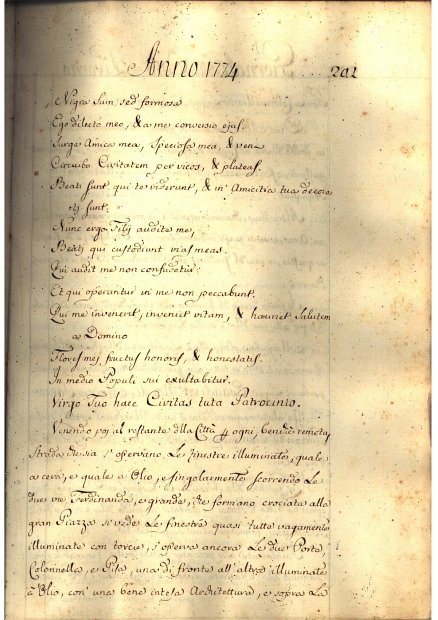 Anno 1774 202
Nigra Sum, sed formosa
Ego dilecto meo, & a me conversio ejus.
Surge Amica mea, Speciosa mea, & veni
Circuibo Civitatem per vicos, & plateas.
Beati sunt qui te viderunt, & in Amicitia tua decora-
ti sunt.
Nunc ergo Filij audite me,
Beati qui custodiunt vias meas.
Qui audit me non confundetur:
Et qui operantur in me non peccabunt.
Qui me invenerit, inveniet vitam, & hauriet Salutem
a Domino
Flores mej, fructus honoris, & honestatis.
In medio Populi sui exultabitur.
Virgo Tuo haec Civitas tuta Patrocinio.
Venendo poi al restante della Città p ogni, benchè remota,
strada che sia s'osservano Le finestre illuminate, quale
a cera, e quale a Olio, e singolarmente scorrendo Le
due vie Ferdinanda, e grande, che formano crociata alla
gran Piazza si vede Le finestre quasi tutte vagamente
illuminate con torcie, s'osserva ancora Le due Porte
Colonnella e Pisa, una di fronte all'altra illuminate
a Olio, con una bene intesa Architettura, e sopra La